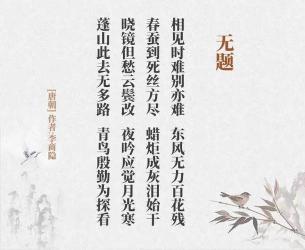 无题
相见时难别亦难
东风无力百花残
春蚕到死丝方尽
蜡炬成灰泪始干
晓镜但愁云鬓改
夜吟应觉月光寒
蓬山此去无多路
青鸟殷勤为探看
[唐朝] 作者:李商隐